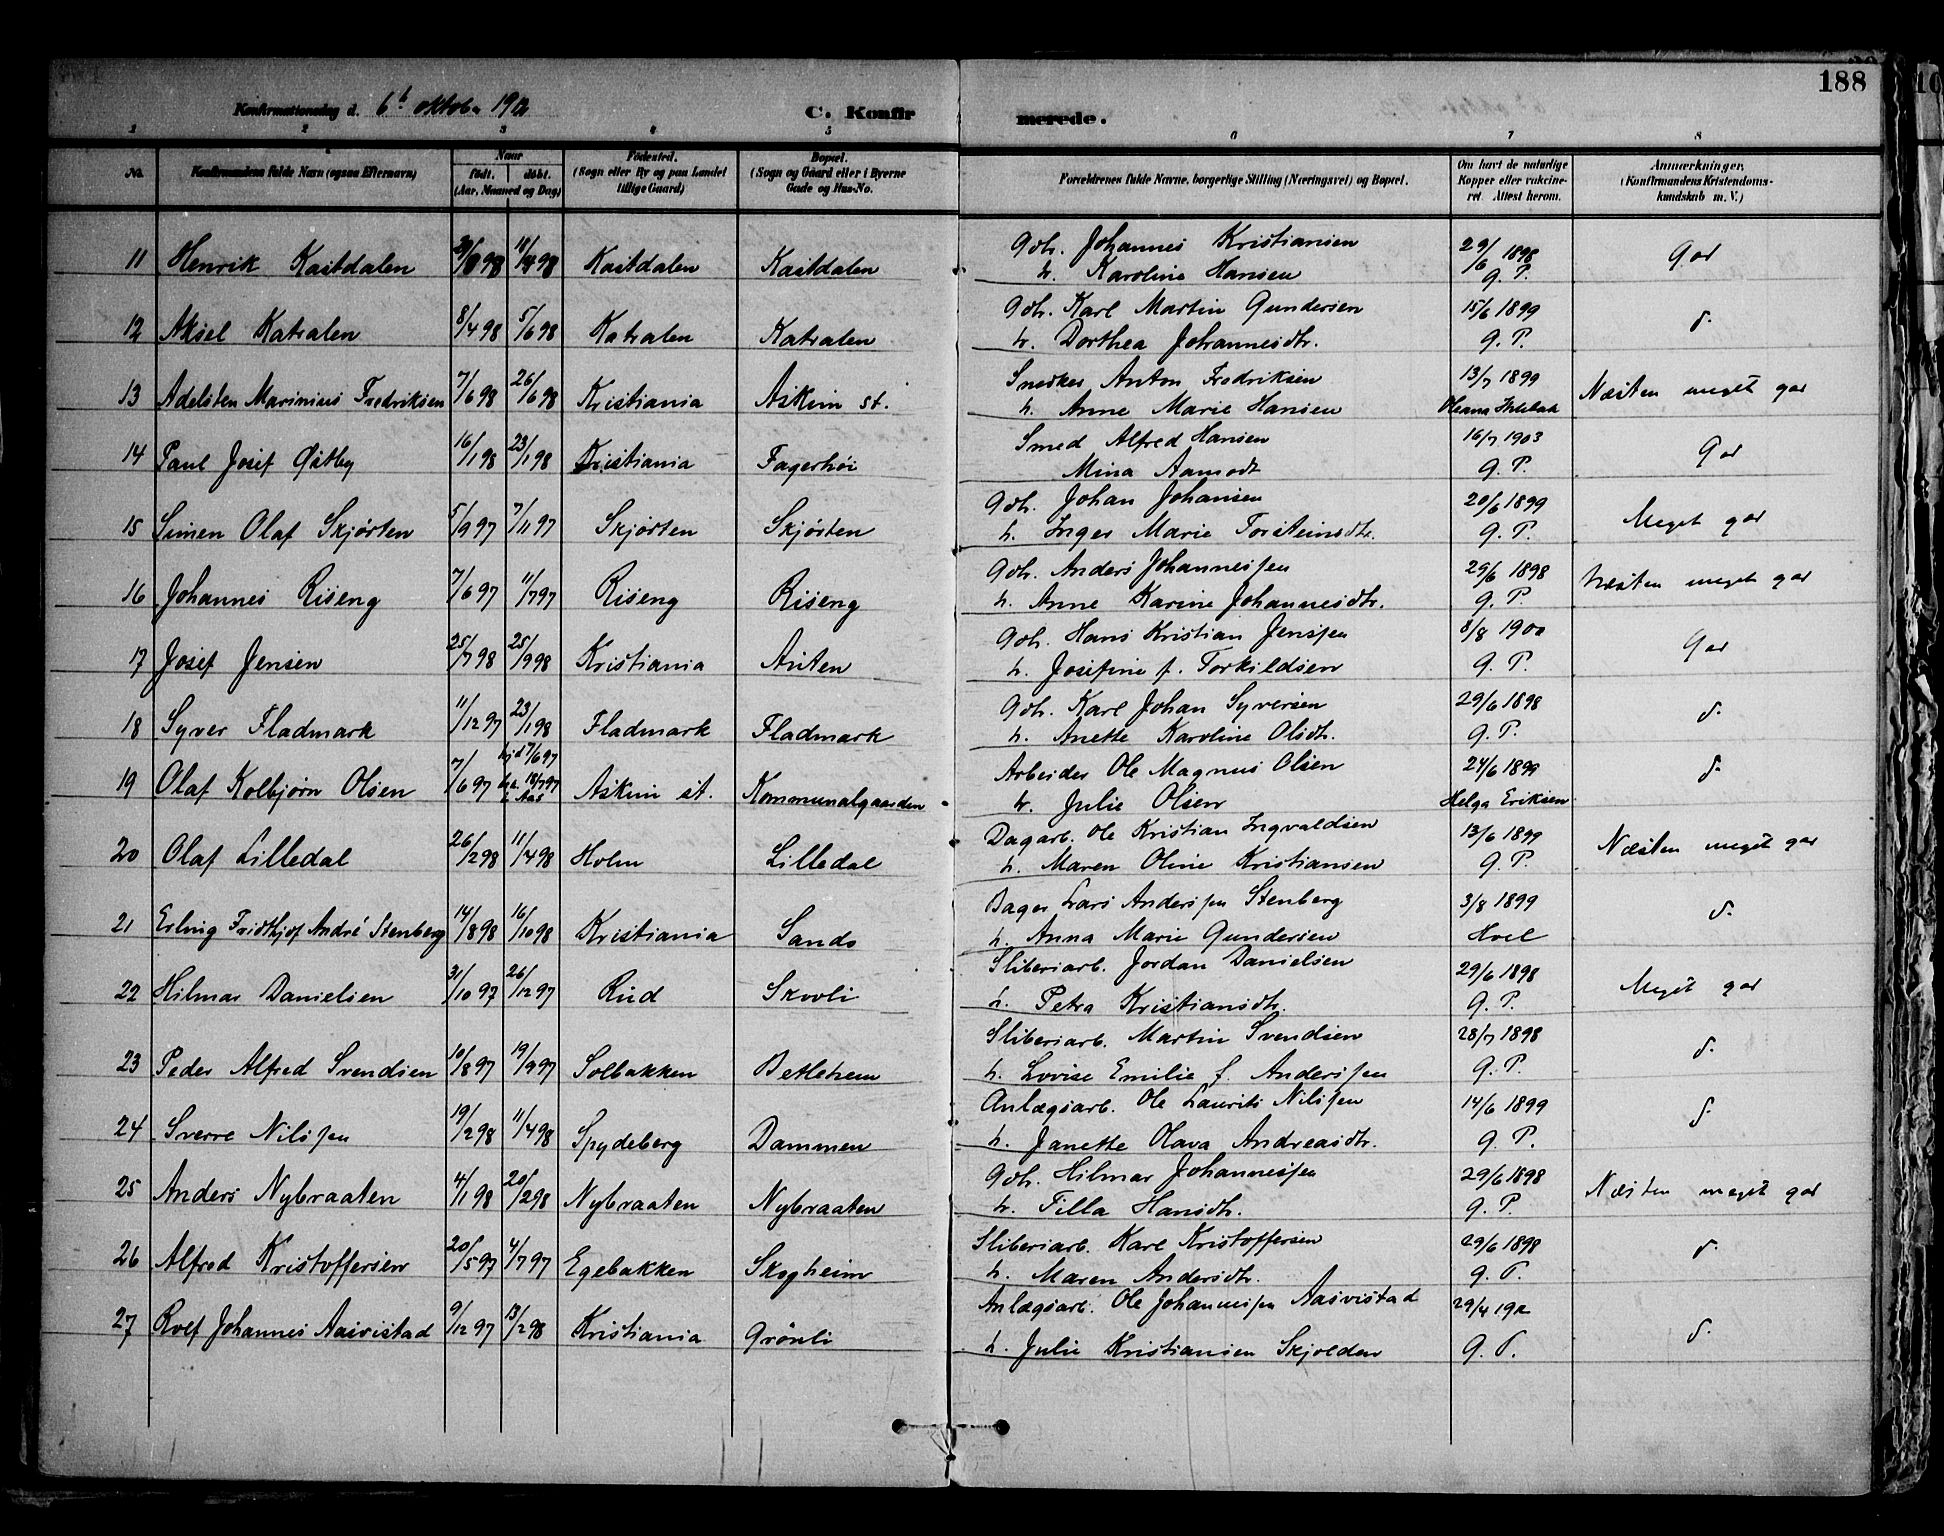 188
Konfirmationsdag d. 6t oktober 1912 C. Konfirmerede.
1 2 3 4 5 6 7 8
No. Konfirmandens fulde Navn (ogsaa Efternavn) Naar født. døbt. (Aar, Maaned og Dag) Fødested. (Sogn eller By og paa Landet tillige Gaard) Bopæl. (Sogn og Gaard eller i Byerne Gade og Hus-No. Forældrenes fulde Navne, borgerlige Stilling (Næringsvei) og Bopæl. Om havt de naturlige Kopper eller vakcineret. Attest herom. Anmærkninger, (Konfirmandens Kristendomskundskab m. V.)
11 Henrik Kastdalen 98 98 Kastdalen Kastdalen Gdb. Johannes Kristiansen 29/6 1898 God
h. Karoline Hansen G. P.
12 Aksel Katralen 8/4 98 5/6 98 Katralen Katralen Gdb. Karl Martin Gundersen 15/6 1899 d.
h. Dorthea Johannesdtr. G. P.
13 Adelsten Marinius Fredriksen 7/6 98 26/6 98 Kristiania Askim st. Snedker Anton Fredriksen 13/7 1899 Næsten meget god
h. Anne Marie Hansen Oleana
14 Paul Josef Østby 16/1 98 23/1 98 Kristiania Fagerhøi Smed Alfred Hansen 16/7 1903 God
Mina Aamodt G. P.
15 Simen Olaf Skjørten 5/9 97 7/11 97 Skjørten Skjørten Gdb. Johan Johansen 20/6 1899 Meget god
h. Inger Marie Torsteinsdtr. G. P.
16 Johannes Riseng 7/6 97 11/7 97 Riseng Riseng Gdb. Anders Johannessen 29/6 1898 Næsten meget god
h. Anne Karine Johannesdtr. G. P.
17 Josef Jensen 25/7 98 25/9 98 Kristiania Auten Gdb. Hans Kristian Jenssen 8/8 1900 God
h. Josefine f. Torkildsen G. P.
18 Syver Fladmark 11/12 97 23/1 98 Fladmark Fladmark Gdb. Karl Johan Syversen 29/6 1898 d.
h. Anette Karoline Olsdtr. G. P.
19 Olaf Kolbjørn Olsen 7/6 97 hjd 7/6 97 18/7 97 i Aas Askim st. Kommunalgaarden Arbeider Ole Magnus Olsen 24/6 1899 d.
h. Julie Olsen Helga Eriksen
20 Olaf Lilledal 26/2 98 11/4 98 Holm Lilledal Dagarb. Ole Kristian Ingvaldsen 13/6 1899 Næsten meget god
h. Maren Oline Kristiansen G. P.
21 Erling Fridthjof André Stenberg 14/8 98 16/10 98 Kristiania Sando Bager Lars Anderssen Stenberg 3/8 1899 d.
h. Anna Marie Gundersen Hoel
22 Hilmar Danielsen 31/10 97 26/12 97 Rud Skovli Sliberiarb. Jordan Danielsen 29/6 1898 Meget god
h. Petra Kristiansdtr. G. P.
23 Peder Alfred Svendsen 10/8 97 19/9 97 Solbakken Betlehem Sliberiarb. Martin Svendsen 28/7 1898 d.
h. Lovise Emilie f. Anderssen G. P.
24 Sverre Nilssen 19/2 98 11/4 98 Spydeberg Dammen Anlægsarb. Ole Laurits Nilssen 14/6 1899 d.
h. Janette Olava Andreasdtr. G. P.
25 Anders Nybraaten 4/1 98 20/2 98 Nybraaten Nybraaten Gdb. Hilmar Johannessen 29/6 1898 Næsten meget god
h. Tilla Hansdtr. G. P.
26 Alfred Kristoffersen 20/5 97 4/7 97 Egebakken Skogheim Sliberiarb. Karl Kristoffersen 29/6 1898 d.
h. Maren Andersdtr. G. P.
27 Rolf Johannes Aasvistad 9/12 97 13/2 98 Kristiania Grønli Anlægsarb. Ole Johannessen Aasvistad 29/4 1912 d.
h. Julie Kristiansen Skjolden G. P.